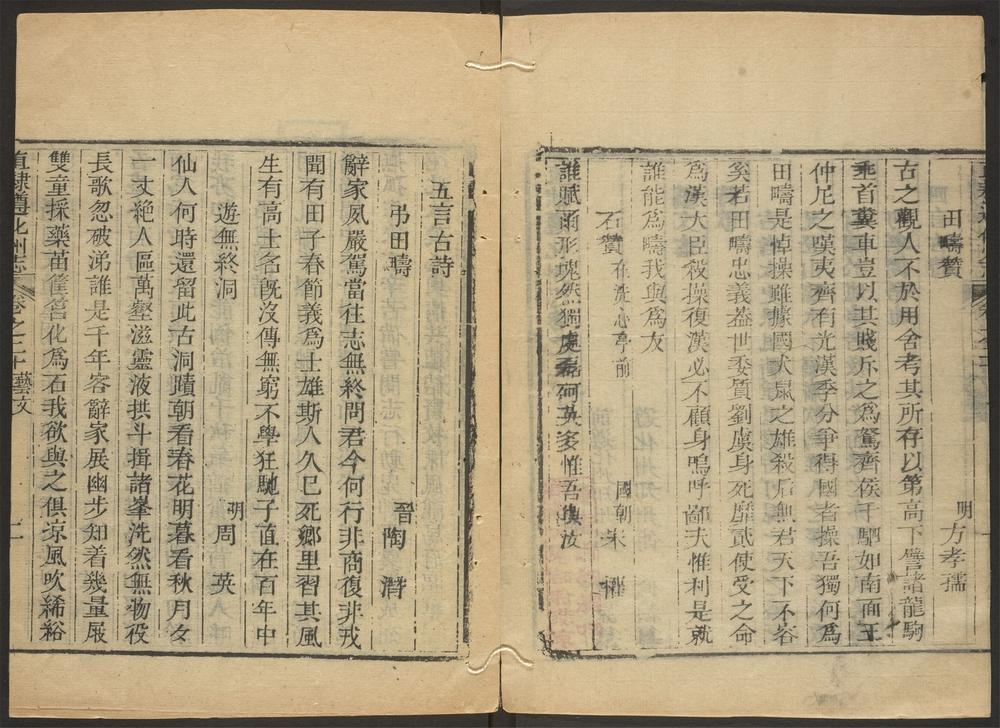 田疇贊
明 方孝孺
古之觀人不於用舍考其所存以第高下譬諸龍駒
垂首糞車豈以其賤斥之爲駑齊侯千駟如南面王
仲尼之嘆夷齊有光漢季分爭得國者操吾獨何爲
田疇是悼操雖據國犬鼠之雄殺后無君天下不容
矣若田疇忠義葢世委質劉虞身死靡貳使受之命
爲漢大臣殺操復漢必不顧身嗚呼鄙夫惟利是就
誰能爲疇我與爲友
石贊 在洗心亭前
國朝 朱 權
誰賦爾形塊然獨處磊砢英多惟吾與汝
五言古詩
弔田疇
晉 陶 潛
辭家夙嚴駕當往志無終問君今何行非商復非戎
聞有田子春節義爲士雄斯人久巳死鄉里習其風
生有高士名旣沒傳無窮不學狂馳子直在百年中
遊無終洞
明 周 英
仙人何時還留此古洞蹟朝看春花明暮看秋月女
一丈絶人區萬壑滋靈液拱斗揖諸峯洗然無物役
長歌忽破涕誰是千年客辭家展幽步知着幾量屐
雙童採藥苗化爲石我欲與之俱凉風吹絺綌
直隸遵化州志
卷之二十 藝文